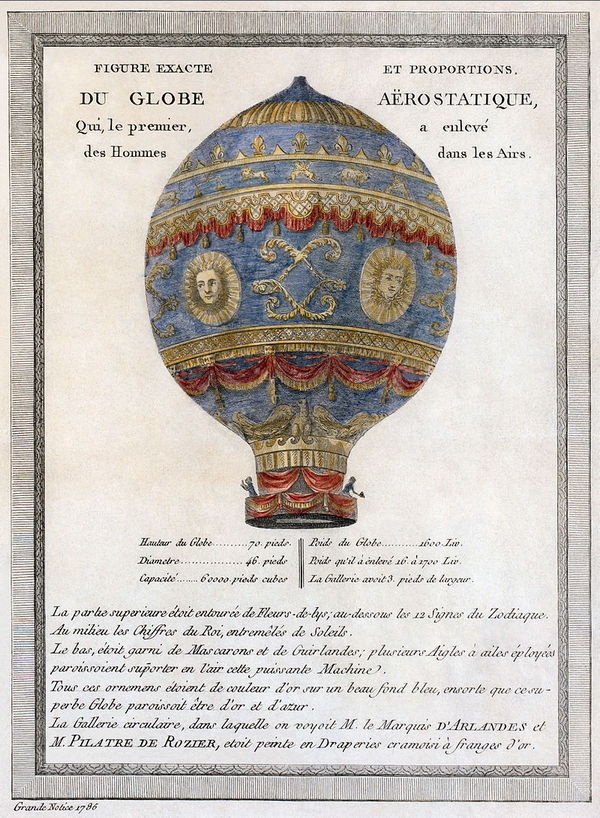 FIGURE EXACTE ET PROPORTIONS,
DU GLOBE AËROSTATIQUE,
Qui, le premier, a enlevé
des Hommes dans les Airs.
Hauteur du Globe..........70. pieds.
Diametre..................46. pieds
Capacité.......60000. pieds cubes
Poids du Globe...........1600. Liv.
Poids qu'il à enlevé 16. à 1700 Liv.
La Gallerie avoit 3. pieds de largeur.
La partie superieure étoit entourée de Fleurs-de-lys; au-dessous les 12 Signes du Zodiaque.
Au milieu les Chiffres du Roi, entremêlés de Soleils.
Le bas, étoit garni de Mascarons et de Guirlandes; plusieurs Aigles à ailes éployées
paroissoient suporter en l'air cette puissante Machine.
Tous ces ornemens étoient de couleur d'or sur un beau fond bleu, ensorte que ce su-
perbe Globe paroissoit être d'or et d'azur.
La Gallerie circulaire, dans laquelle on voyoit M. le Marquis D'ARLANDES et
M. PILATRE DE ROZIER, etoit peinte en Draperies cramoisi à franges d'or.
Grande Notice 1786